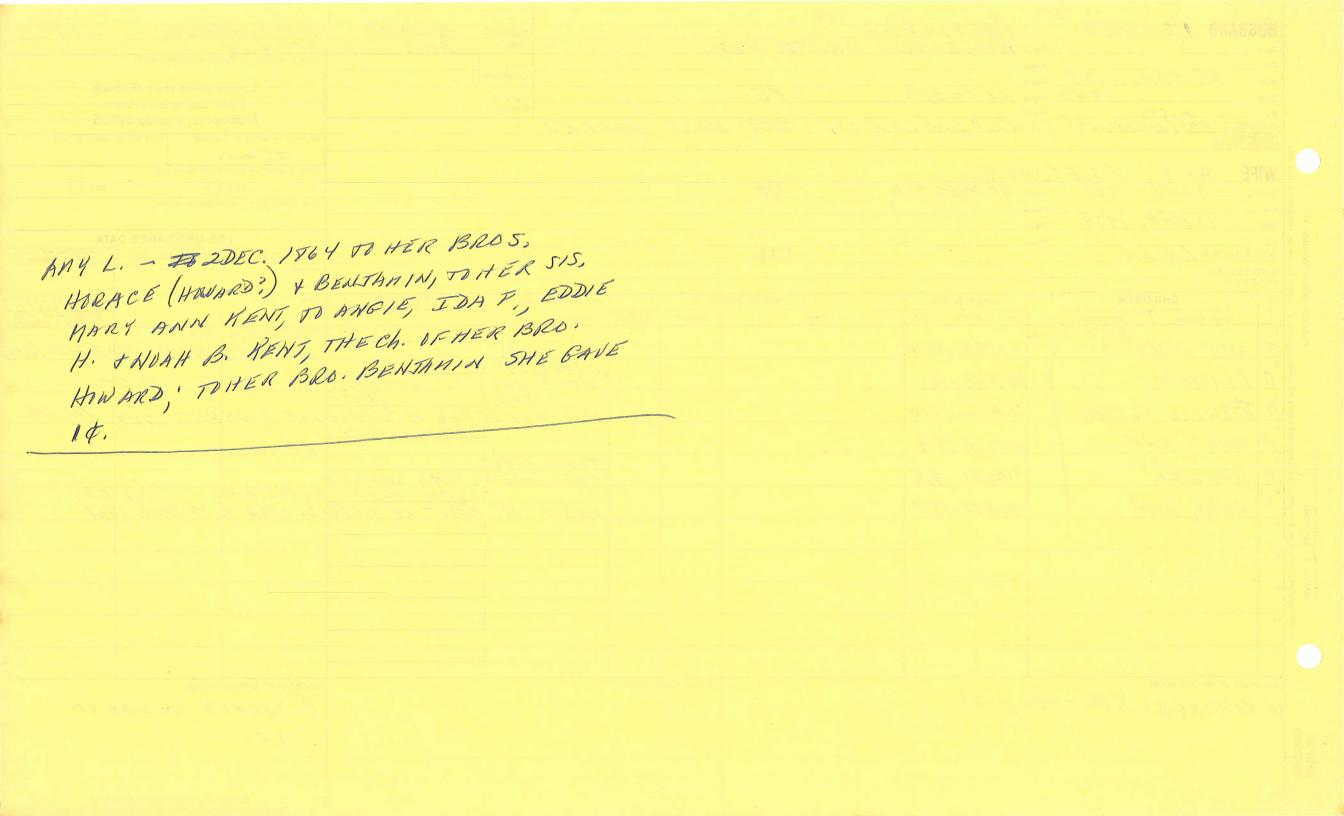 AMY L. - 2 DEC. 1864 TO HER BROS,
HORACE (HOWARD?) & BENJAMIN, TO HER SIS,
MARY ANN KENT, TO ANGIE, IDA F., EDDIE
H. & NOAH B. KENT, THE CH. OF HER BRO.
HOWARD; TO HER BRO. BENJAMIN SHE GAVE
1¢.